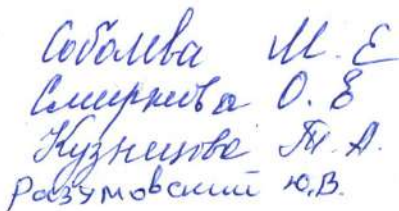 Соболева М. Е
Смирнова О. Е
Кузнецова Т. А.
Разумовский Ю.В.